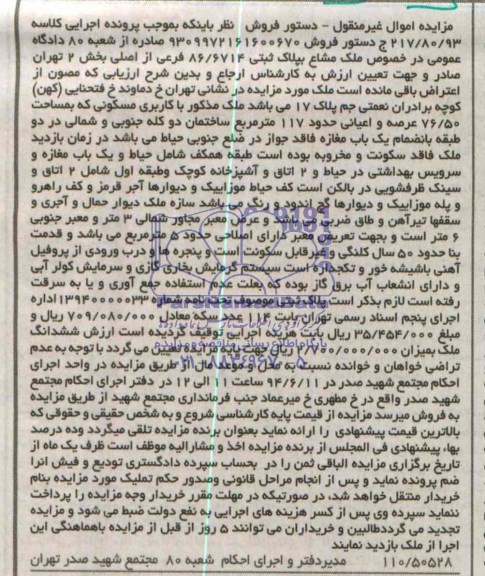 مزایده اموال غیرمنقول - دستور فروش نظر باینکه بموجب پرونده اجرایی کلاسه
۲۱۷/۸۰/۹۳ ج دستور فروش ۹۳۰۹۹۷۲۱۶۱۶۰۰۶۷۰ صادره از شعبه ۸۰ دادگاه
عمومی در خصوص ملک مشاع بپلاک ثبتی ۸۶/۶۷۱۴ فرعی از اصلی بخش ۲ تهران
صادر و جهت تعیین ارزش به کارشناس ارجاع و بدین شرح ارزیابی که مصون از
اعتراض باقی مانده است ملک مورد مزایده در نشانی تهران خ دماوند خ فتحنایی (کهن)
کوچه برادران نعمتی جم پلاک ۱۷ می باشد ملک مذکور با کاربری مسکونی که بمساحت
۷۶/۵۰ عرصه و اعیانی حدود ۱۱۷ مترمربع ساختمان دو کله جنوبی و شمالی در دو
طبقه بانضمام یک باب مغازه فاقد جواز در ضلع جنوبی حیاط می باشد در زمان بازدید
ملک فاقد سکونت و مخروبه بوده است طبقه همکف شامل حیاط و یک باب مغازه و
سرویس بهداشتی در حیاط و ۲ اتاق و آشپزخانه کوچک وطبقه اول شامل ۲ اتاق و
سینک ظرفشویی در بالکن است کف حیاط موزاییک و دیوارها آجر قرمز و کف راهرو
و پله موزاییک و دیوارها گچ اندود و رنگ می باشد سازه ملک دیوار حمال و آجری و
سقفها تیرآهن و طاق ضربی می باشد و عرض معبر مجاور شمالی ۳ متر و معبر جنوبی
۶ متر است و بجهت تعریض معبر دارای اصلاحی حدود ۵ مترمربع می باشد و قدمت
بنا حدود ۵۰ سال کلنگی و غیرقابل سکونت است و پنجره ها و درب ورودی از پروفیل
آهنی باشیشه خور و تکجداره است سیستم گرمایش بخاری گازی و سرمایش کولر آبی
و دارای انشعاب آب برق گاز بوده که بعلت عدم استفاده جمع آوری و یا به سرقت
رفته است لازم بذکر است پلاک ثبتی موصوف تحت نامه شماره ۱۳۹۴۰۰۰۰۰۳۳ اداره
اجرای پنجم اسناد رسمی تهران بابت ۱۱۴ عدد سکه معادل ۷۰۹/۰۸۰/۰۰۰ ریال و
مبلغ ۳۵/۴۵۴/۰۰۰ ریال بابت هزینه اجرایی توقیف گردیده است ارزش ششدانگ
ملک بمیزان ۲/۷۰۰/۰۰۰/۰۰۰ ریال جهت پایه مزایده تعیین می گردد با توجه به عدم
تراضی خواهان و خوانده نسبت به محل و موعد مال از طریق مزایده در واحد اجرای
احکام مجتمع شهید صدر در ۹۴/۶/۱۱ ساعت ۱۱ الی ۱۲ در دفتر اجرای احکام مجتمع
شهید صدر واقع در خ مطهری خ میرعماد جنب فرمانداری مجتمع شهید از طریق مزایده
به فروش میرسد مزایده از قیمت پایه کارشناسی شروع و به شخص حقیقی و حقوقی که
بالاترین قیمت پیشنهادی را ارائه نماید بعنوان برنده مزایده تلقی میگردد وده درصد
بهاء پیشنهادی فی المجلس از برنده مزایده اخذ و مشارالیه موظف است ظرف یک ماه از
تاریخ برگزاری مزایده الباقی ثمن را در بحساب سپرده دادگستری تودیع و فیش انرا
ضم پرونده نماید و پس از انجام مراحل قانونی وصدور حکم تملیک مورد مزایده بنام
خریدار منتقل خواهد شد، در صورتیکه در مهلت مقرر خریدار وجه مزایده را پرداخت
ننماید سپرده وی پس از کسر هزینه های اجرایی به نفع دولت ضبط می شود و مزایده
تجدید می گرددطالبین و خریداران می توانند ۵ روز از قبل از مزایده باهماهنگی این
اجرا از ملک بازدید نمایند
۱۱۰/۵۰۵۲۸ مدیردفتر و اجرای احکام شعبه ۸۰ مجتمع شهید صدر تهران